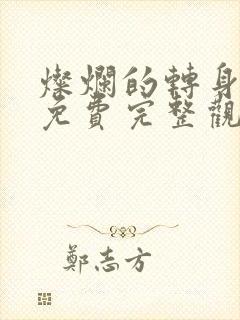 燦爛的轉身
免費完整觀
鄭志方